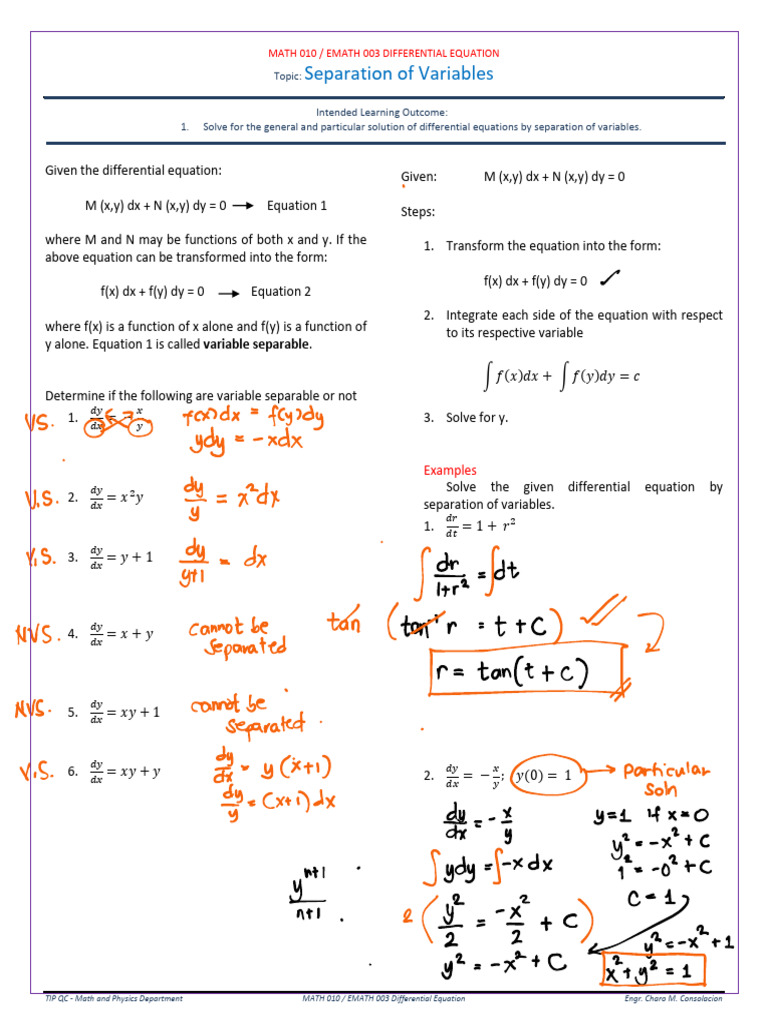 MATH 010 / EMATH 003 DIFFERENTIAL EQUATION
Topic: Separation of Variables
Intended Learning Outcome:
1. Solve for the general and particular solution of differential equations by separation of variables.
Given the differential equation:
M (x,y) dx + N (x,y) dy = 0 ⟶ Equation 1
where M and N may be functions of both x and y. If the
above equation can be transformed into the form:
f(x) dx + f(y) dy = 0 ⟶ Equation 2
where f(x) is a function of x alone and f(y) is a function of
y alone. Equation 1 is called variable separable.
Determine if the following are variable separable or not
VS. 1. dy/dx = − x/y f(x)dx = f(y)dy
ydy = -xdx
V.S. 2. dy/dx = x²y dy/y = x²dx
V.S. 3. dy/dx = y + 1 dy/y+1 = dx
NVS. 4. dy/dx = x + y cannot be
separated
NVS. 5. dy/dx = xy + 1 cannot be
separated.
V.S. 6. dy/dx = xy + y dy/dx = y (x+1)
dy/y = (x+1) dx
y^n+1/n+1
Given: M (x,y) dx + N (x,y) dy = 0
Steps:
1. Transform the equation into the form:
f(x) dx + f(y) dy = 0 ✓
2. Integrate each side of the equation with respect
to its respective variable
∫ f(x)dx + ∫ f(y)dy = c
3. Solve for y.
Examples
Solve the given differential equation by
separation of variables.
1. dr/dt = 1 + r²
∫ dr/1+r² = ∫dt
tan ( tan⁻¹ r = t + C ) ✓✓
r = tan(t + c)
2. dy/dx = − x/y; y(0) = 1 → particular
soln
dy/dx = - x/y
∫ ydy = ∫ -x dx
2 ( y²/2 = -x²/2 + C )
y² = -x² + C
y=1 if x=0
y² = -x² + C
1² = -0² + C
C = 1
y² = -x² + 1
x² + y² = 1
TIP QC - Math and Physics Department MATH 010 / EMATH 003 Differential Equation Engr. Charo M. Consolacion